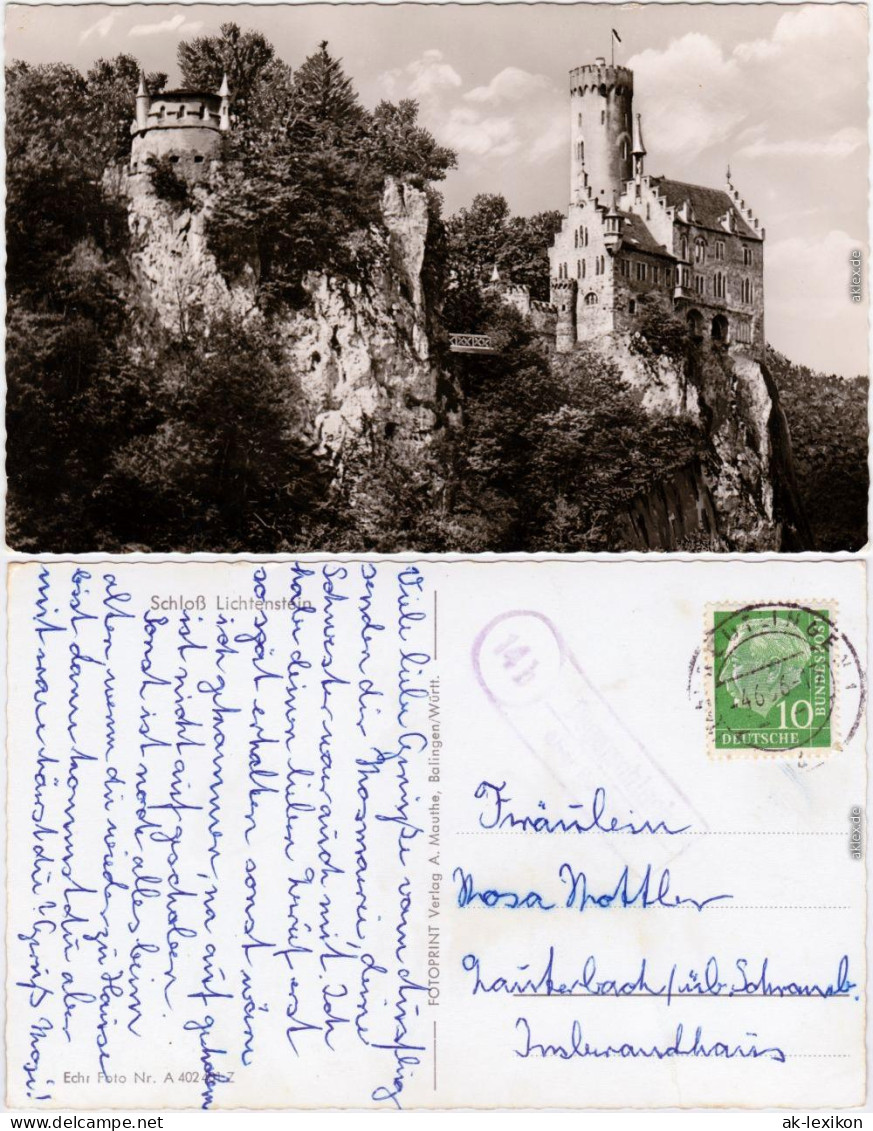 Schloß Lichtenstein
Viele liebe Grüße vom Ausflug
senden dir Rosmarie, deine
Schwester war auch mit. Ich
habe deinen lieben Brief erst
so spät erhalten sonst wäre
ich gekommen, na auf gehoben
ist nicht aufgschoben.
Sonst ist noch alles beim
alten, wenn du wieder zu Hause
bist dann kommst du aber
mit was hörst du? Gruß Rosi!
Echt Foto Nr. A 402
FOTOPRINT Verlag A. Mauthe, Balingen/Württ.
14b
DEUTSCHE
BUNDESPOST
10
Fräulein
Rosa Kottler
Lauterbach/üb. Schramb.
Imbrandhaus
akpool.de
ak-lexikon.de